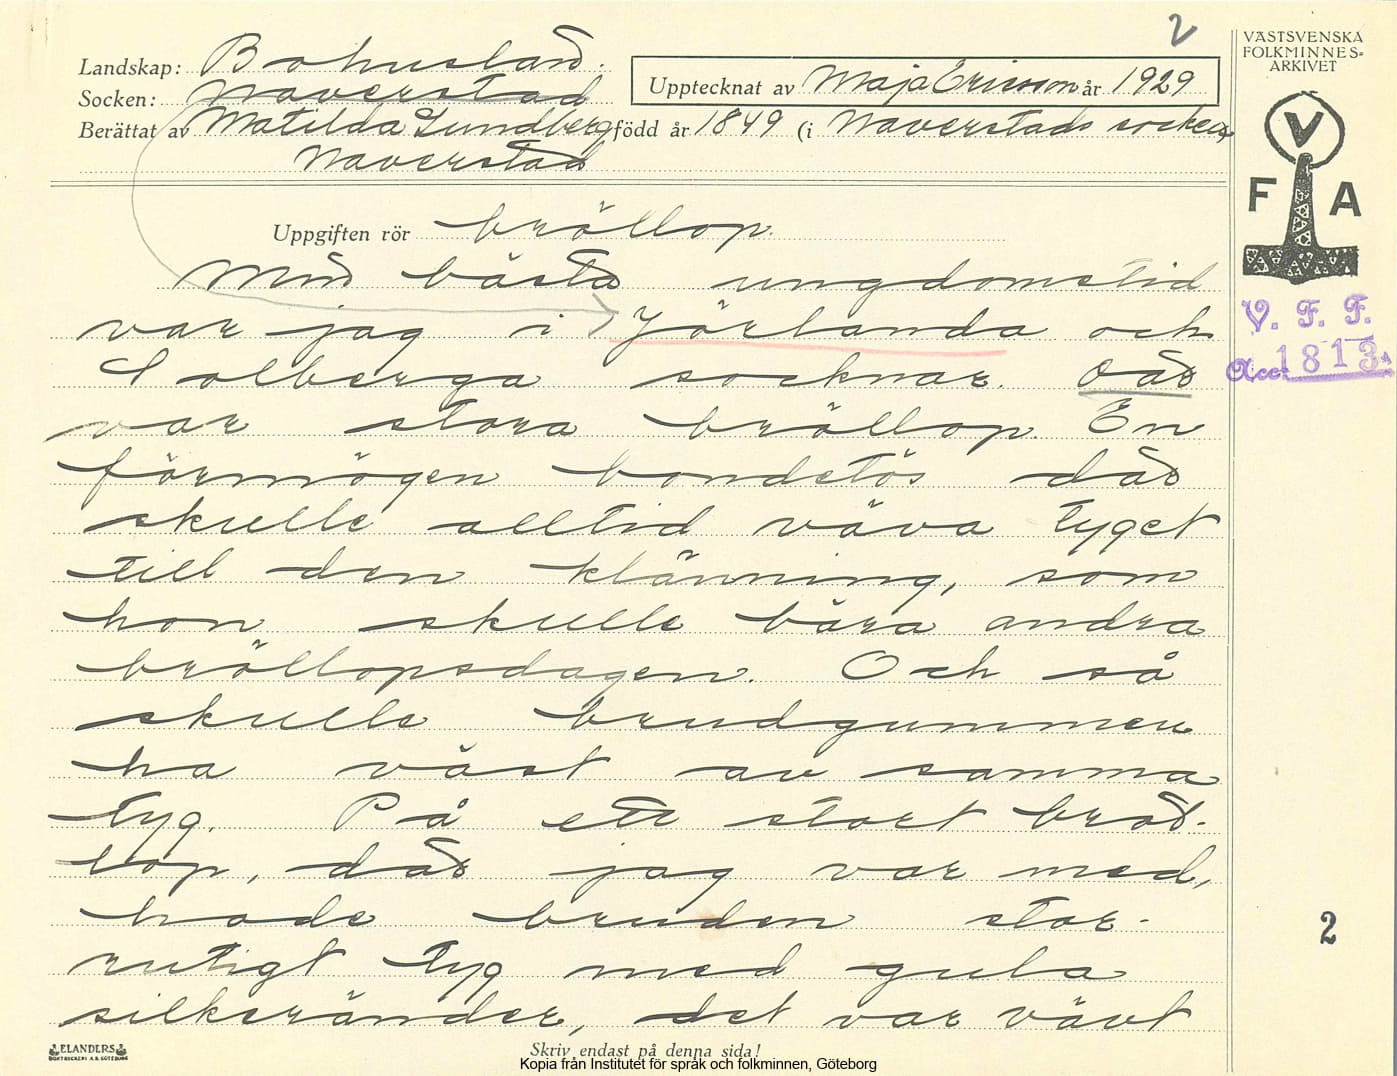 2
VÄSTSVENSKA
FOLKMINNES-
ARKIVET
Landskap: Bohuslän.
Socken: Naverstad
Upptecknat av Maja Ericson år 1929
Berättat av Matilda Lundberg född år 1849 (i Naverstads socken)
Naverstad
V
F A
Uppgiften rör bröllop.
Min bästa ungdomstid
var jag i Jörlanda och
Solberga socknar. Där
var stora bröllop. En
förmögen bondetös där
skulle alltid väva tyget
till den klänning, som
hon skulle bära andra
bröllopsdagen. Och så
skulle brudgummen
ha väst av samma
tyg. På ett stort bröl-
lop, där jag var med,
hade bruden stor-
rutigt tyg med gula
silkeränder, det var vävt
V. F. F.
Acc. 1813
2
ELANDERS
BOKTRYCKERI A.B. GÖTEBORG
Skriv endast på denna sida!
Kopia från Institutet för språk och folkminnen, Göteborg